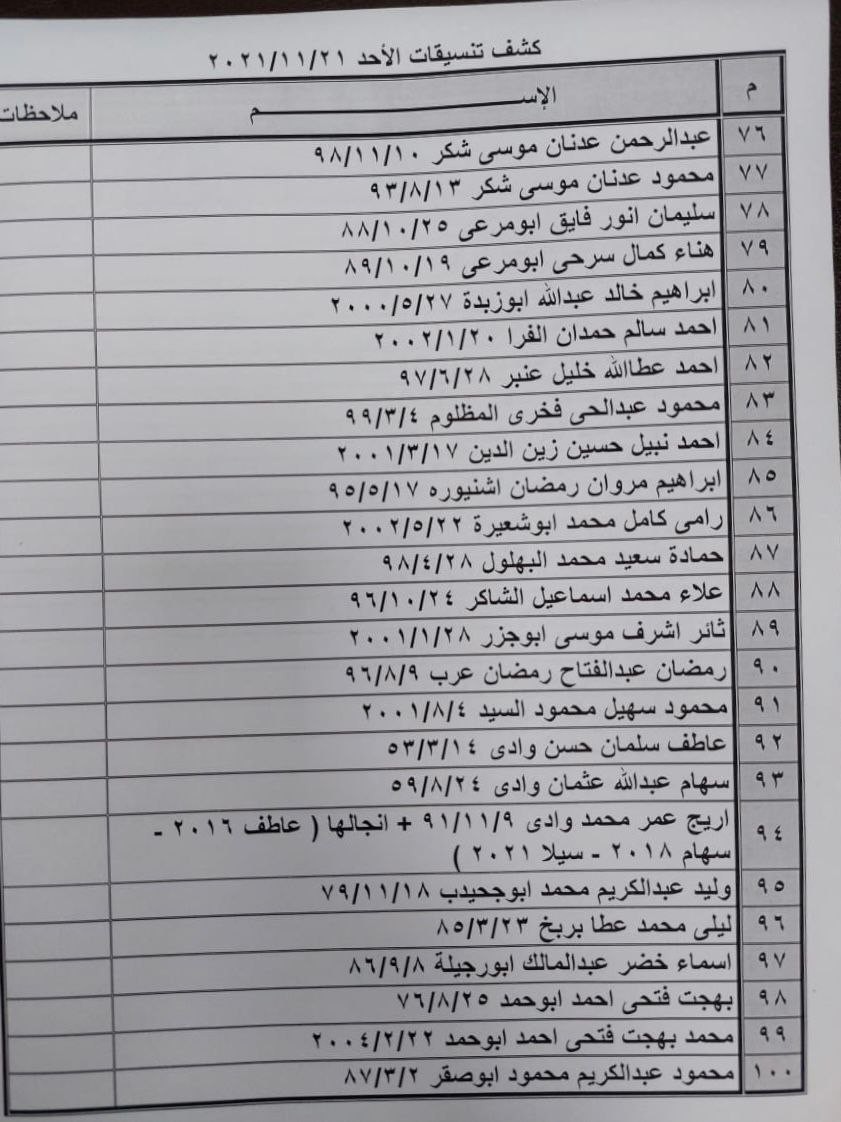 كشف تنسيقات الأحد ٢٠٢١/١١/٢١
م الإســـــــــــــــم ملاحظات
٧٦ عبدالرحمن عدنان موسى شكر ٩٨/١١/١٠
٧٧ محمود عدنان موسى شكر ٩٣/٨/١٣
٧٨ سليمان انور فايق ابومرعى ٨٨/١٠/٢٥
٧٩ هناء كمال سرحى ابومرعى ٨٩/١٠/١٩
٨٠ ابراهيم خالد عبدالله ابوزبدة ٢٠٠٠/٥/٢٧
٨١ احمد سالم حمدان الفرا ٢٠٠٢/١/٢٠
٨٢ احمد عطاالله خليل عنبر ٩٧/٦/٢٨
٨٣ محمود عبدالحى فخرى المظلوم ٩٩/٣/٤
٨٤ احمد نبيل حسين زين الدين ٢٠٠١/٣/١٧
٨٥ ابراهيم مروان رمضان اشنيوره ٩٥/٥/١٧
٨٦ رامى كامل محمد ابوشعيرة ٢٠٠٢/٥/٢٢
٨٧ حمادة سعيد محمد البهلول ٩٨/٤/٢٨
٨٨ علاء محمد اسماعيل الشاكر ٩٦/١٠/٢٤
٨٩ ثائر اشرف موسى ابوجزر ٢٠٠١/١/٢٨
٩٠ رمضان عبدالفتاح رمضان عرب ٩٦/٨/٩
٩١ محمود سهيل محمود السيد ٢٠٠١/٨/٤
٩٢ عاطف سلمان حسن وادى ٥٣/٣/١٤
٩٣ سهام عبدالله عثمان وادى ٥٩/٨/٢٤
٩٤ اريج عمر محمد وادى ٩١/١١/٩ + انجالها ( عاطف ٢٠١٦ -
سهام ٢٠١٨ - سيلا ٢٠٢١ )
٩٥ وليد عبدالكريم محمد ابوجحيدب ٧٩/١١/١٨
٩٦ ليلى محمد عطا بربخ ٨٥/٣/٢٣
٩٧ اسماء خضر عبدالمالك ابورجيلة ٨٦/٩/٨
٩٨ بهجت فتحى احمد ابوحمد ٧٦/٨/٢٥
٩٩ محمد بهجت فتحى احمد ابوحمد ٢٠٠٤/٢/٢٢
١٠٠ محمود عبدالكريم محمود ابوصقر ٨٧/٣/٢